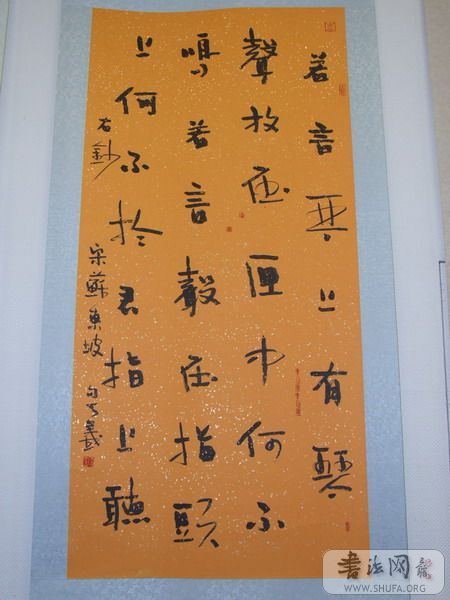 若言琴上有琴
聲放在匣中何不
鳴若言聲在指頭
上何不於君指上聽
右鈔
宋蘇東坡句
書法网
WWW.SHUFA.ORG